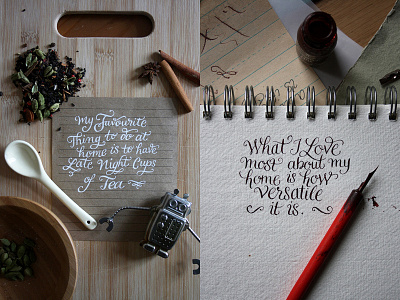 My Favourite
Thing to do at
home is to have
Late Night Cups
of Tea
What I Love
most about my
home is how
Versatile
it is.